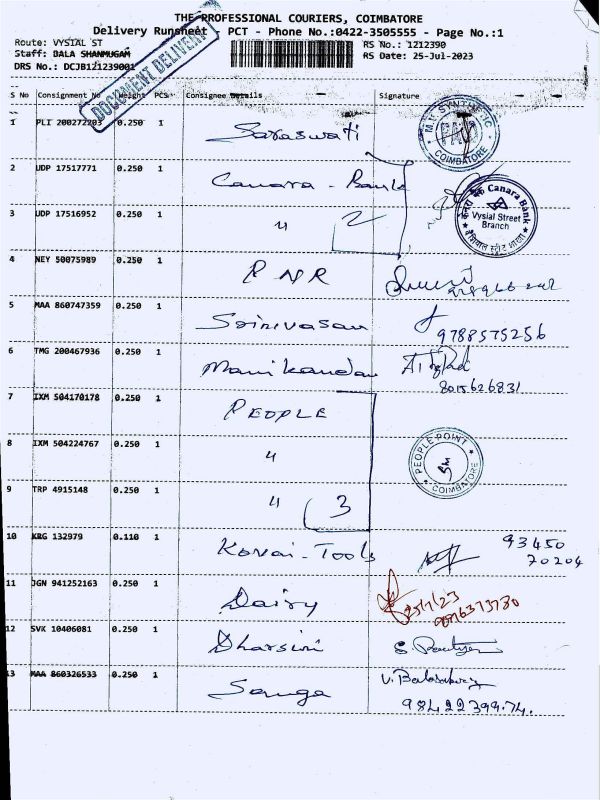 THE PROFESSIONAL COURIERS, COIMBATORE
Delivery Runsheet PCT - Phone No.:0422-3505555 - Page No.:1
Route: VYSIAL ST
RS No.: 1212390
Staff: BALA SHANMUGAM
RS Date: 25-Jul-2023
DRS No.: DCJB121239001
DOCUMENT DELIVERY
S No Consignment No Weight PCS Consignee Details Signature
1 PLI 200272203 0.250 1 Saraswati
M.H. SYNTHETIC COIMBATORE
2 UDP 17517771 0.250 1 Canara - Bank
3 UDP 17516952 0.250 1 " 2
Canara Bank
Vysial Street
Branch
4 NEY 50075989 0.250 1 R N R
5 MAA 860747359 0.250 1 Srinivasan
9788575256
6 TMG 200467936 0.250 1 Manikandan
8015626831
7 IXM 504170178 0.250 1 PEOPLE
8 IXM 504224767 0.250 1 "
PEOPLE POINT COIMBATORE
9 TRP 4915148 0.250 1 " 3
10 KRG 132979 0.110 1 Kovai - Tools
93450
70204
11 JGN 941252163 0.250 1 Dairy
25/7/23
12 SVK 10406081 0.250 1 Dharsini
13 MAA 860326533 0.250 1 Sanga
9842239974.